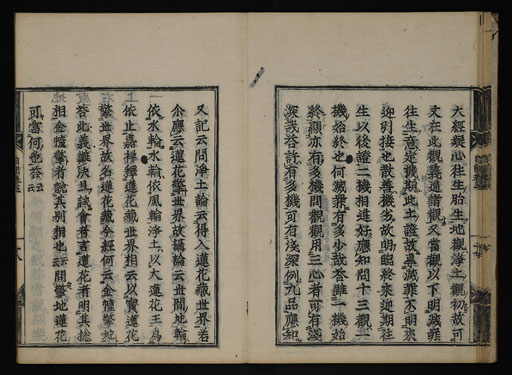 大經疑心往生胎生地觀淨土觀初故可
又在此觀義通諸觀又當觀以下明滅罪
往生意定機期此土證故皆滅罪不明來
迎引接也散善機劣故明臨終來迎期往
生以後證二機相違好應知問十三觀一
機始終也何滅罪有多少哉答雖一機始
終顯亦有多機問觀觀用三心者可有淺
深哉答許有多機可有淺深例九品應知
又記云問淨土論云得入蓮花藏世界若
尒應云蓮花擎世界故講論云世間地輪
依水輪水輪依風輪淨土以大蓮花王爲
依止嘉祥釋蓮花藏世界相云以寶蓮花
擎世界故名蓮花藏今經何云金幢擎地
答此義難決且試會者言蓮花者明其
相金幢擎者說其別相也云云問擎地蓮花
可寶何色答云云